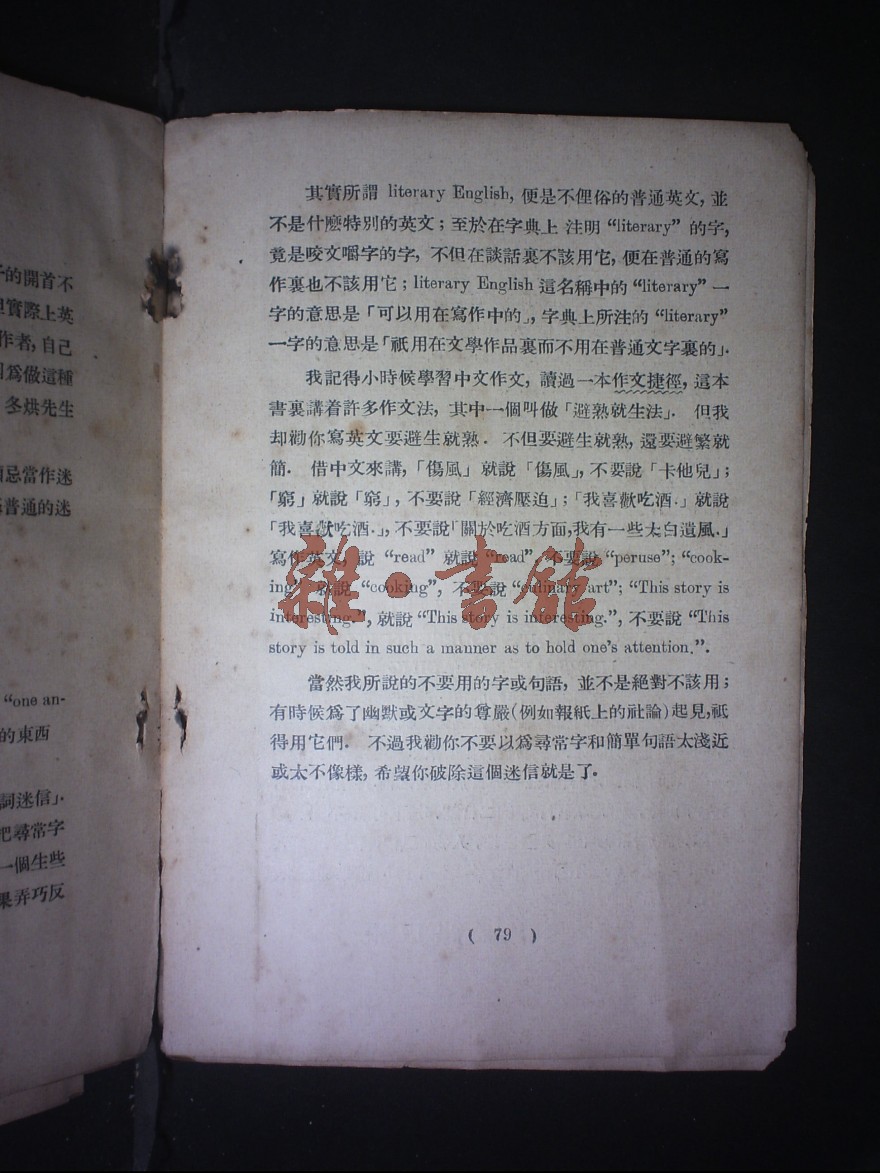 子的開首不
但實際上英
作者, 自己
因爲做這種
冬烘先生
忌當作迷
普通的迷
“one an-
的東西
詞迷信」.
把尋常字
一個生些
果弄巧反
其實所謂 literary English, 便是不俚俗的普通英文, 並
不是什麽特別的英文; 至於在字典上 注明 “literary” 的字,
竟是咬文嚼字的字, 不但在談話裏不該用它, 便在普通的寫
作裏也不該用它; literary English 這名稱中的 “literary” 一
字的意思是「可以用在寫作中的」, 字典上所注的 “literary”
一字的意思是「祇用在文學作品裏而不用在普通文字裏的」.
我記得小時候學習中文作文, 讀過一本作文捷徑, 這本
書裏講着許多作文法, 其中一個叫做「避熟就生法」. 但我
却勸你寫英文要避生就熟. 不但要避生就熟, 還要避繁就
簡. 借中文來講,「傷風」就說「傷風」, 不要說「卡他兒」;
「窮」就說「窮」, 不要說「經濟壓迫」;「我喜歡吃酒.」就說
「我喜歡吃酒.」, 不要說「關於吃酒方面, 我有一些太白遺風.」
寫作英文, 說 “read” 就說 “read”, 不要說 “peruse”; “cook-
ing” 就說 “cooking”, 不要說 “culinary art”; “This story is
interesting.”, 就說 “This story is interesting.”, 不要說 “This
story is told in such a manner as to hold one's attention.”.
當然我所說的不要用的字或句語, 並不是絕對不該用;
有時候爲了幽默或文字的尊嚴(例如報紙上的社論)起見, 祇
得用它們. 不過我勸你不要以爲尋常字和簡單句語太淺近
或太不像樣, 希望你破除這個迷信就是了.
( 79 )
雜·書館